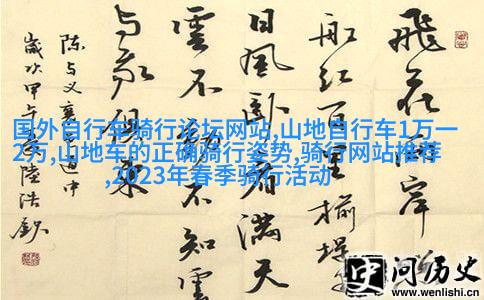 飛花兩岸
船紅百里榆堤
日風臥看滿天
雲不動不知雲
与我俱東
陈与义襄邑道中
歲次甲午夏陸浩
国外自行车骑行论坛网站,山地自行车1万一
2万,山地车的正确骑行姿势,骑行网站推荐
,2023年春季骑行活动
史问历史
www.wenlishi.cn